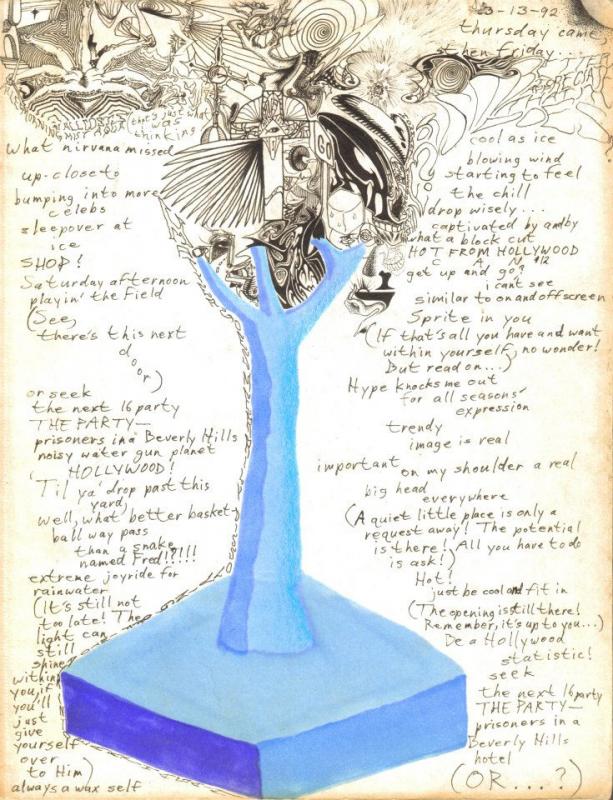 3-13-92
thursday came
then friday...
(that's just what
I was
thinking
what nirvana missed
up-close to
bumping into more
celebs
sleepover at
ice
SHOP!
Saturday afternoon
playin' the field
(See,
there's this next
door)
or seek
the next 16 party
THE PARTY—
prisoners in a Beverly Hills
noisy water gun planet
HOLLYWOOD!
'Til ya' drop past this
yard,
well, what better basket-
ball way pass
than a snake
named Fred!?!!!
extreme joyride for
rainwater
(It's still not
too late! The
light can
still
shine
within
you, if
you'll
just
give
yourself
over
to Him)
always a wax self
cool as ice
blowing wind
starting to feel
the chill
drop wisely...
captivated by andby
what a block cut
HOT FROM HOLLYWOOD
get up and go?
i cant see
similar to on and off screen
Sprite in you
(If that's all you have and want
within yourself, no wonder!
But read on...)
Hype knocks me out
for all seasons'
expression
trendy
image is real
important on my shoulder a real
big head
everywhere
(A quiet little place is only a
request away! The potential
is there! All you have to do
is ask!)
Hot!
just be cool and fit in
(The opening is still there!
Remember, it's up to you...)
Be a Hollywood
statistic!
seek
the next 16 party
THE PARTY—
prisoners in a
Beverly Hills
hotel
(OR...?)